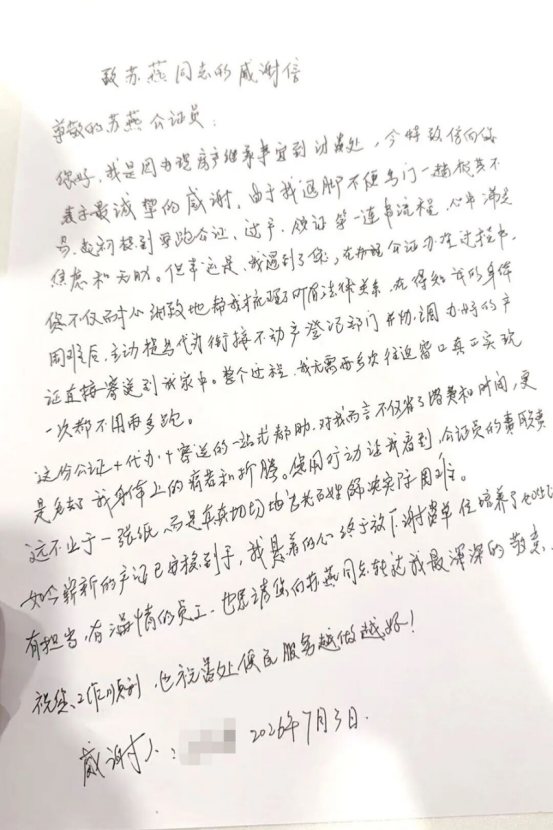 致苏燕同志的感谢信
尊敬的苏燕公证员：
您好，我是因办理房产继承事宜到访贵处，今特致信向您
表示最诚挚的感谢。由于我腿脚不便出门一趟很是不
易，起初想到要跑公证、过户、领证等一连串流程，心中满是
焦虑和无助。但幸运是，我遇到了您，在办理公证办理过程中，
您不仅耐心细致地帮我梳理了所有法律关系，在得知我的身体
困难后，主动提出代为衔接不动产登记部门并协调办好的产
证直接寄送到我家中。整个过程，我无需再多次往返窗口真正实现
一次都不用再多跑。
这份公证+代办+寄送的一站式帮助，对我而言不仅省了路费和时间，更
是免却了我身体上的病痛和折腾。您用行动让我看到，公证员的责任
远不止于一张纸，而是真真切切地为老百姓解决实际困难。
如今崭新的产证已安稳到手，我悬着的心终于放下，谢谢贵单位培养了
有担当，有温情的员工，也恳请您向苏燕同志转达我最深深的敬意。
祝您工作顺利，也祝贵处便民服务越做越好！
感谢人： 2026年7月3日.